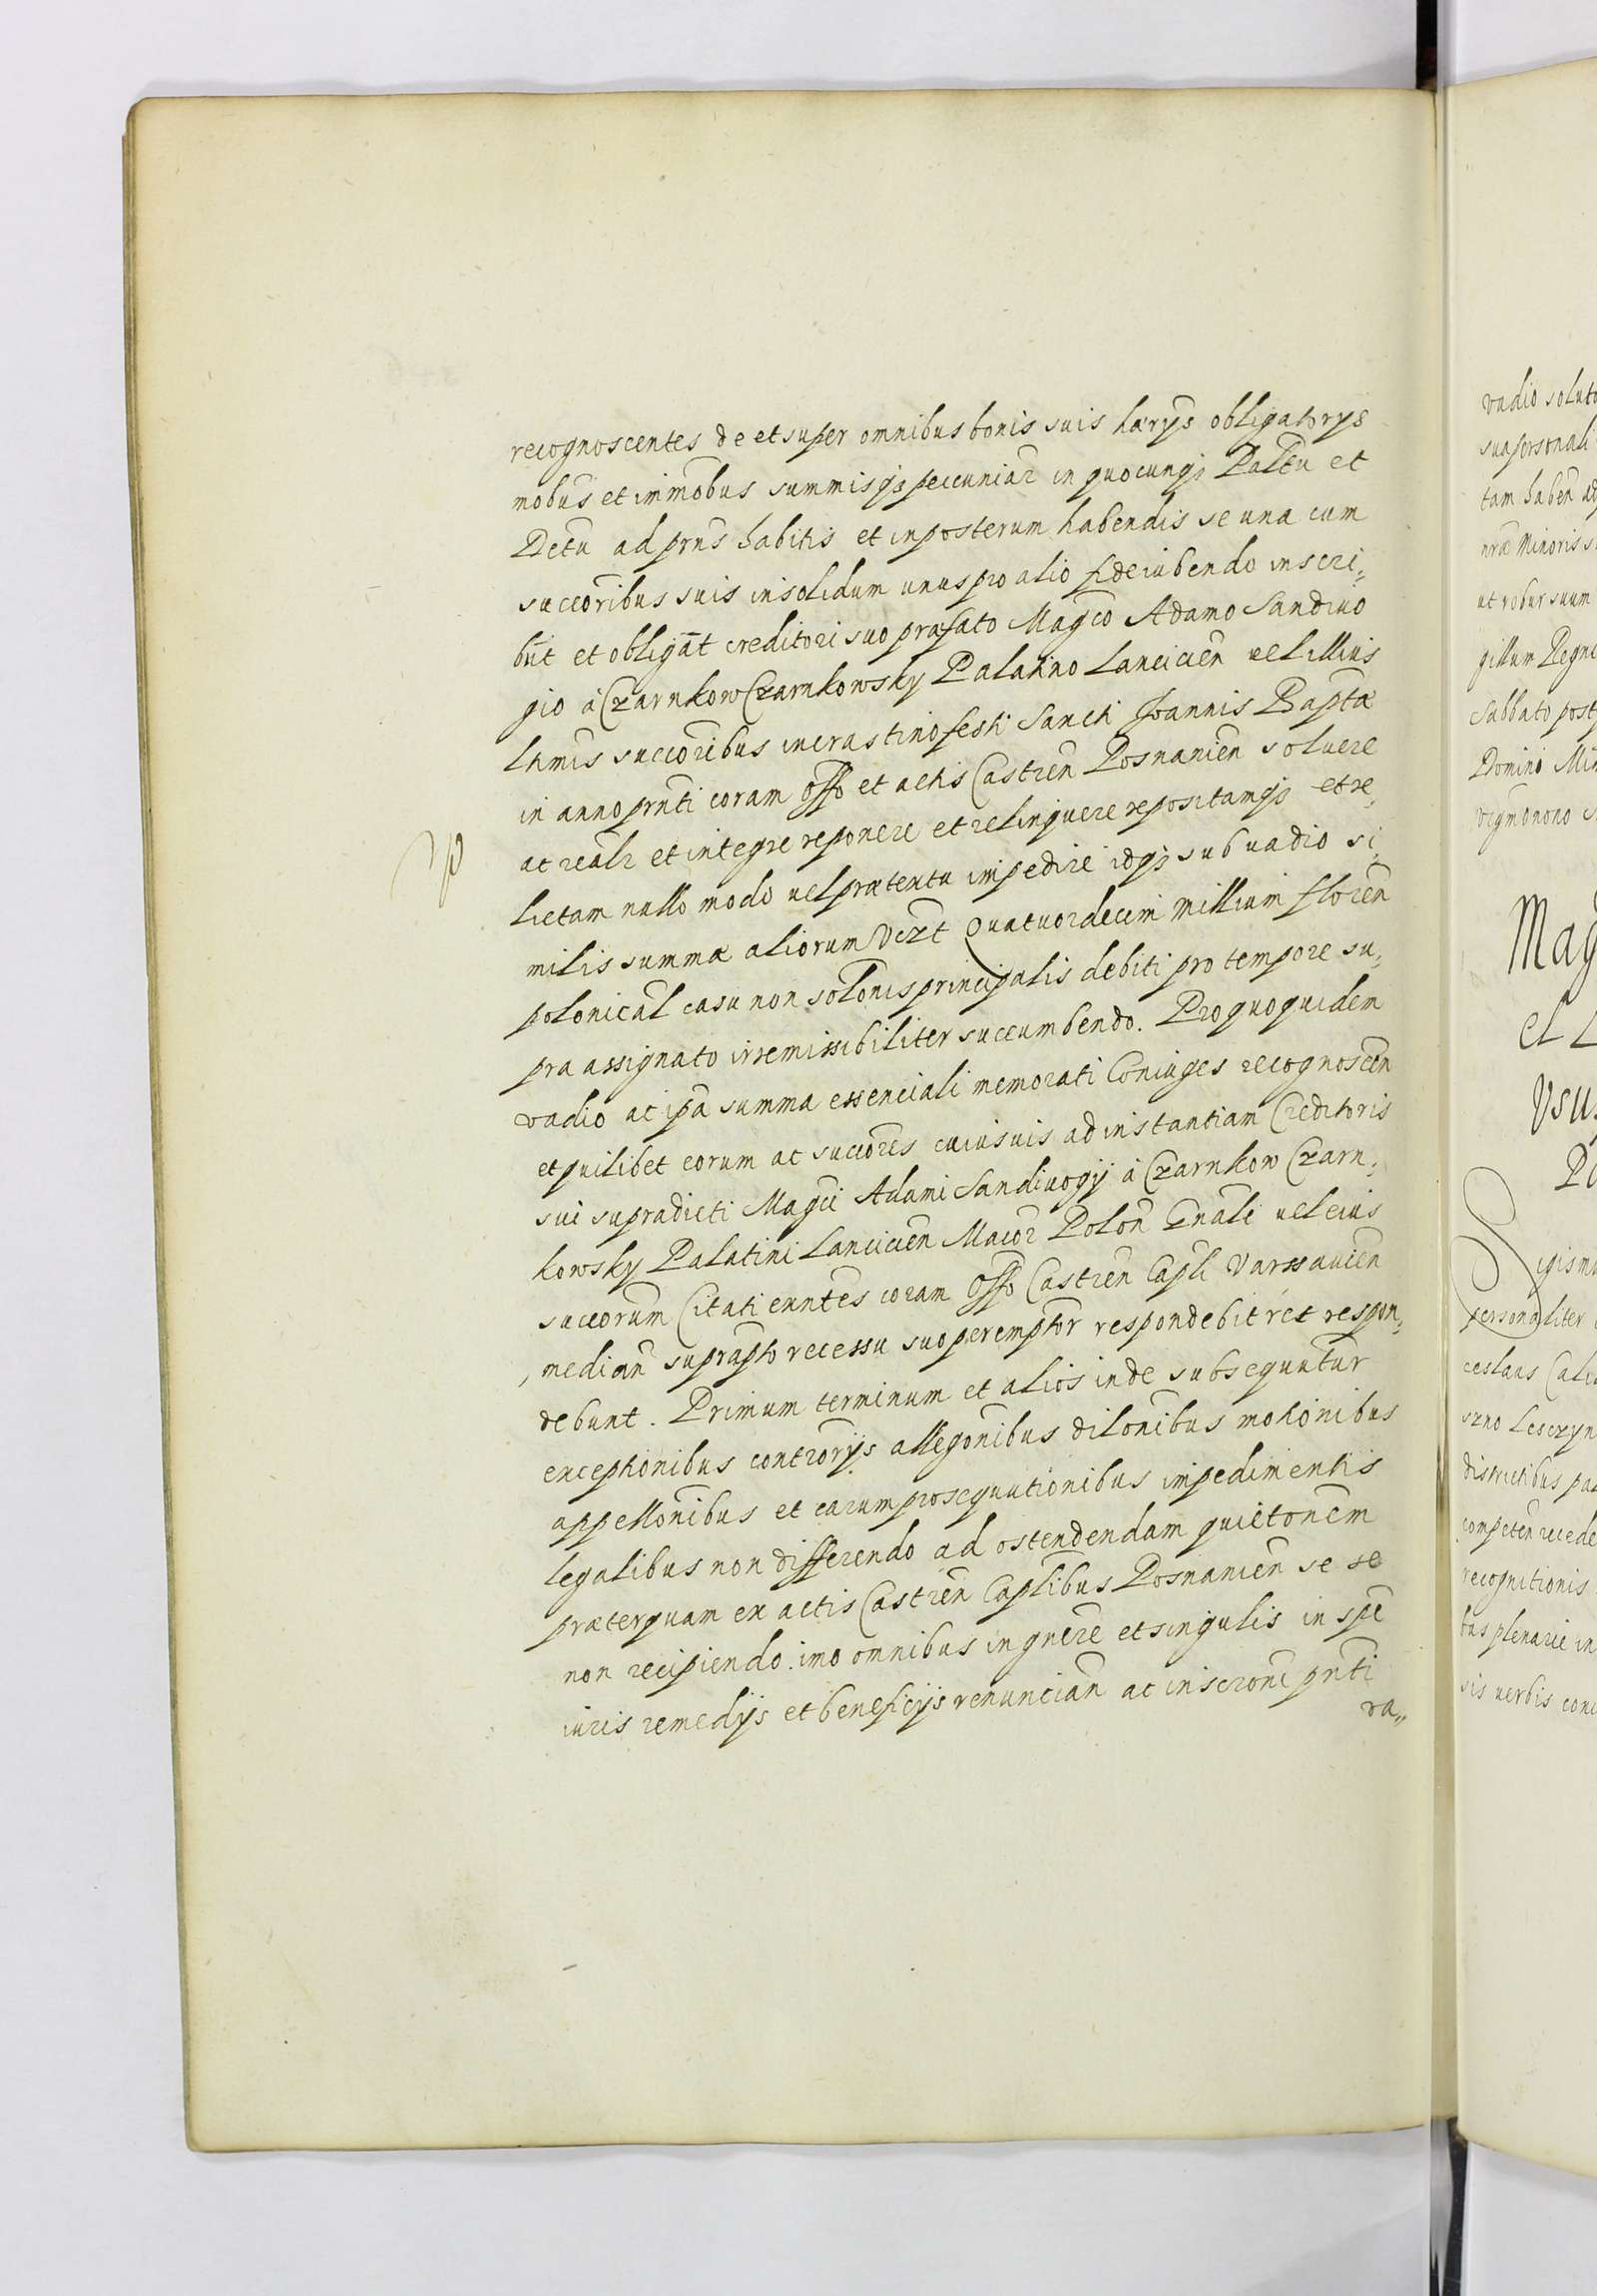 recognoscentes de et super omnibus bonis suis hærys obligatorys
mobus et immobus summisq3 pecuniar in quocunq3 Paltu et
Dctu ad prns habitis et inposterum habendis se una cum
succoribus suis insolidum unus pro alio fideiubendo inscri„
bnt et obligat creditori suo præfato Magco Adamo Sandivo
gio à Czarnkow Czarnkowsky Palatino Lancicien vel illius
ltmis succoribus incrastino festi Sancti Joannis Baptæ
in anno prnti coram Offo et actis Castren Posnanien solvere
ac realr et integre reponere et relinquere repositamq3 et re„
lictam nullo modo vel prætextu impedire idq3 sub vadio si„
milis summæ aliorum Vczt Quatuordecim Millium floren
polonical casu non solonis principalis debiti pro tempore su„
pra assignato irremissibiliter succumbendo. Pro quo quidem
vadio ac ipa summa essenciali memorati Coniuges recognoscen
et quilibet eorum ac succores cuiusuis ad instantiam Creditoris
sui supradicti Magci Adami Sandivogij à Czarnkow Czarn„
kowsky Palatini Lancicien Maior Polon Gnali vel eius
succorum Citati enntes coram Offo Castren Capli Varssavien
median suprapto recessu suo peremptor respondebit ret respon„
debunt. Primum terminum et alios inde subsequutur
exceptionibus controrijs allegonibus dilonibus motionibus
appellonibus et earum prosequutionibus impedimentis
legalibus non differendo ad ostendendam quietonem
præterquam ex actis Castren Caplibus Posnanien se se
non recipiendo. imo omnibus in gnere et singulis in spe
iuris remedijs et beneficijs renuncian ac inscroni pnti
ra„
vadio soluto
sua personali
tam haben
nræ Minoris
ut robur suum
gillum Regni
Sabbato post
Domini
Mag
et
Usu
Sigismu
personaliter
ceslaus
distructibus
competen recede
recognitionis
bus plenarie in
sis verbis